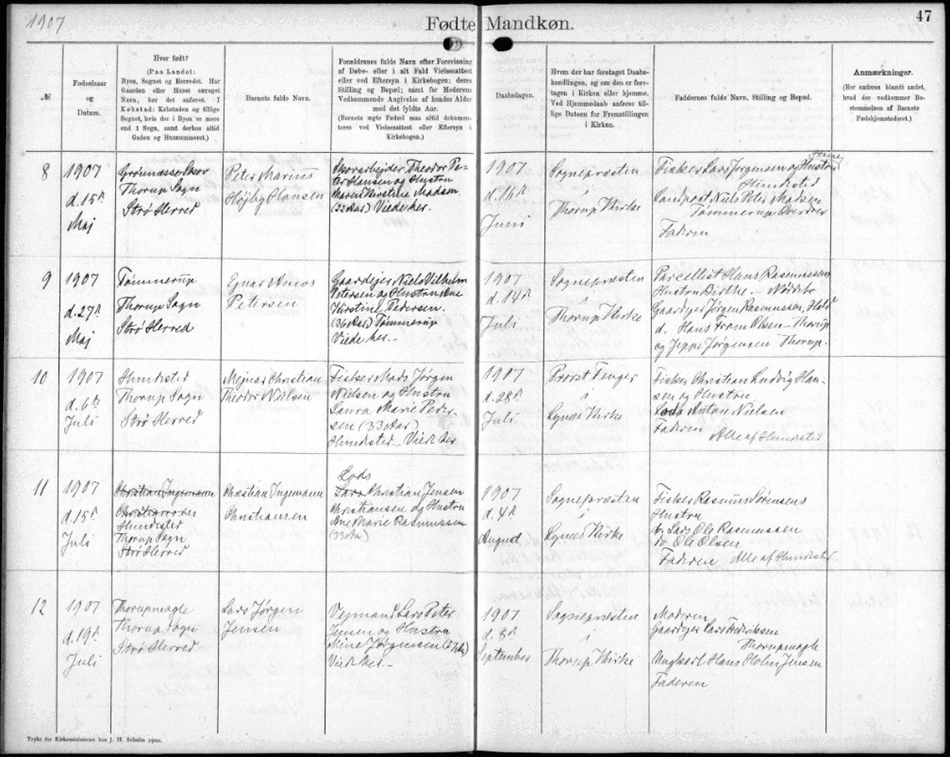 1907
Fødte Mandkøn.
47
№
Fødselsaar
og
Datum.
Hvor født?
(Paa Landet:
Byen, Sognet og Herredet. Har
Gaarden eller Huset særeget
Navn, bør det anføres. I
Købstad: Købstaden og tillige
Sognet, hvis der i Byen er mere
end 1 Sogn, samt derhos altid
Gaden og Husnummeret.)
Barnets fulde Navn.
Forældrenes fulde Navn efter Forevisning
af Døbe- eller i alt Fald Vielsesattest
eller ved Eftersyn i Kirkebogen; deres
Stilling og Bopæl; samt for Moderens
Vedkommende Angivelse af hendes Alder
med det fyldte Aar.
(Barnets ægte Fødsel maa altid dokumen-
teres ved Vielsesattest eller Eftersyn i
Kirkebogen.)
Daabsdagen.
Hvem der har foretaget Daabs-
handlingen, og om den er fore-
tagen i Kirken eller hjemme.
Ved Hjemmedaab anføres til-
lige Datoen for Fremstillingen
i Kirken.
Faddernes fulde Navn, Stilling og Bopæl.
Anmærkninger.
(Her anføres blandt andet,
hvad der vedkommer Be-
stemmelsen af Barnets
Fødehjemsteder.)
8
1907
d. 15d
Maj
Grønnasse Skov
Thorup Sogn
Strø Herred
Peter Marius
Højby Hansen
Skovarbejder Theodor Pe-
ter Hansen og Hustru
Maren Kirstine Madsen
(32 Aar) Viede her.
1907
d. 16d
Juni
Sognepræsten
i
Thorup Kirke
Fisker Lars Jørgensen og Hustru
Hundested
Landpost Niels Peter Madsen
Tømmerup Overdrev
Faderen
9
1907
d. 27d
Maj
Tømmerup
Thorup Sogn
Strø Herred
Ejnar Amos
Petersen
Gaardejer Niels Vilhelm
Petersen og Hustru Ane
Kirstine Pedersen.
(36 Aar) Tømmerup
Viede her.-
1907
d. 14d
Juli
Sognepræsten
i
Thorup Kirke
Parcellist Hans Rasmussen
Hustru Birthe.
Gaardejer Jørgen Rasmussen,
d. Hans From Olsen - Thorup
og Jeppe Jørgensen Thorup.
10
1907
d. 6te
Juli
Hundested
Thorup Sogn
Strø Herred
Mejnar Christian
Theodor Nielsen
Fisker Mads Jørgen
Nielsen og Hustru
Laura Marie Peder-
sen (33 Aar)
Hundested. Viede her
1907
d. 28d
Juli
Provst Fenger
i
Lynæs Kirke
Fisker Christian Ludvig Han-
sen og Hustru
Lods Anton Nielsen
Faderen
Alle af Hundested
11
1907
d. 15d
Juli
Christian Ingemann
Christiansen
Hundested
Thorup Sogn
Strø Herred
Christian Ingemann
Christiansen
Lods
Lars Christian Jensen
Christiansen og Hustru
Ane Marie Rasmussen
(33 Aar)
1907
d. 4d
August
Sognepræsten
i
Lynæs Kirke
Fisker Rasmus Sørensens
Hustru
Lars Ole Rasmussen
Ole Olsen
Faderen Alle af Hundested
12
1907
d. 19d
Juli
Thorupmagle
Thorup Sogn
Strø Herred
Lars Jørgen
Jensen
Vejmand Lars Peter
Jensen og Hustru
Stine Jørgensen
Viede her.-
1907
d. 8d
September
Sognepræsten
i
Thorup Kirke
Moderen
Gaardejer Lars Fredriksen
Thorupmagle
Ungkarl Hans Holm Jensen
Faderen
Trykt for Kirkeministeriet hos J. H. Schultz 1900.